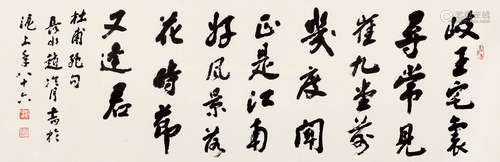 岐王宅裏
尋常見
崔九堂前
幾度聞
正是江南
好風景落
花時節
又逢君
杜甫絕句
長水趙冷月書於
滬上年八十六